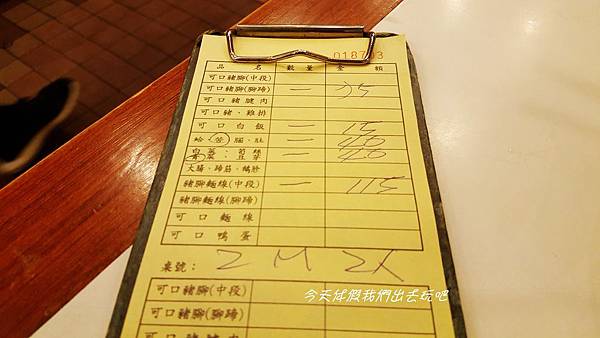 018793
品名 數量 金額
可口豬腳(中段)
可口豬腳(腳蹄) 一 95
可口豬腱肉
可口豬、雞排
可口白飯 一 15
蛤、苦、腦、肚 一 40
白菜、筍絲
青菜、豆芽 一 40
大腸、蹄筋、鵝胗
豬腳麵線(中段) 一 115
豬腳麵線(腳蹄)
可口麵線
可口鴨蛋
桌號： 2 M 2X
可口豬腳(中段)
可口豬腳(腳蹄)
今天好假我們出去玩吧